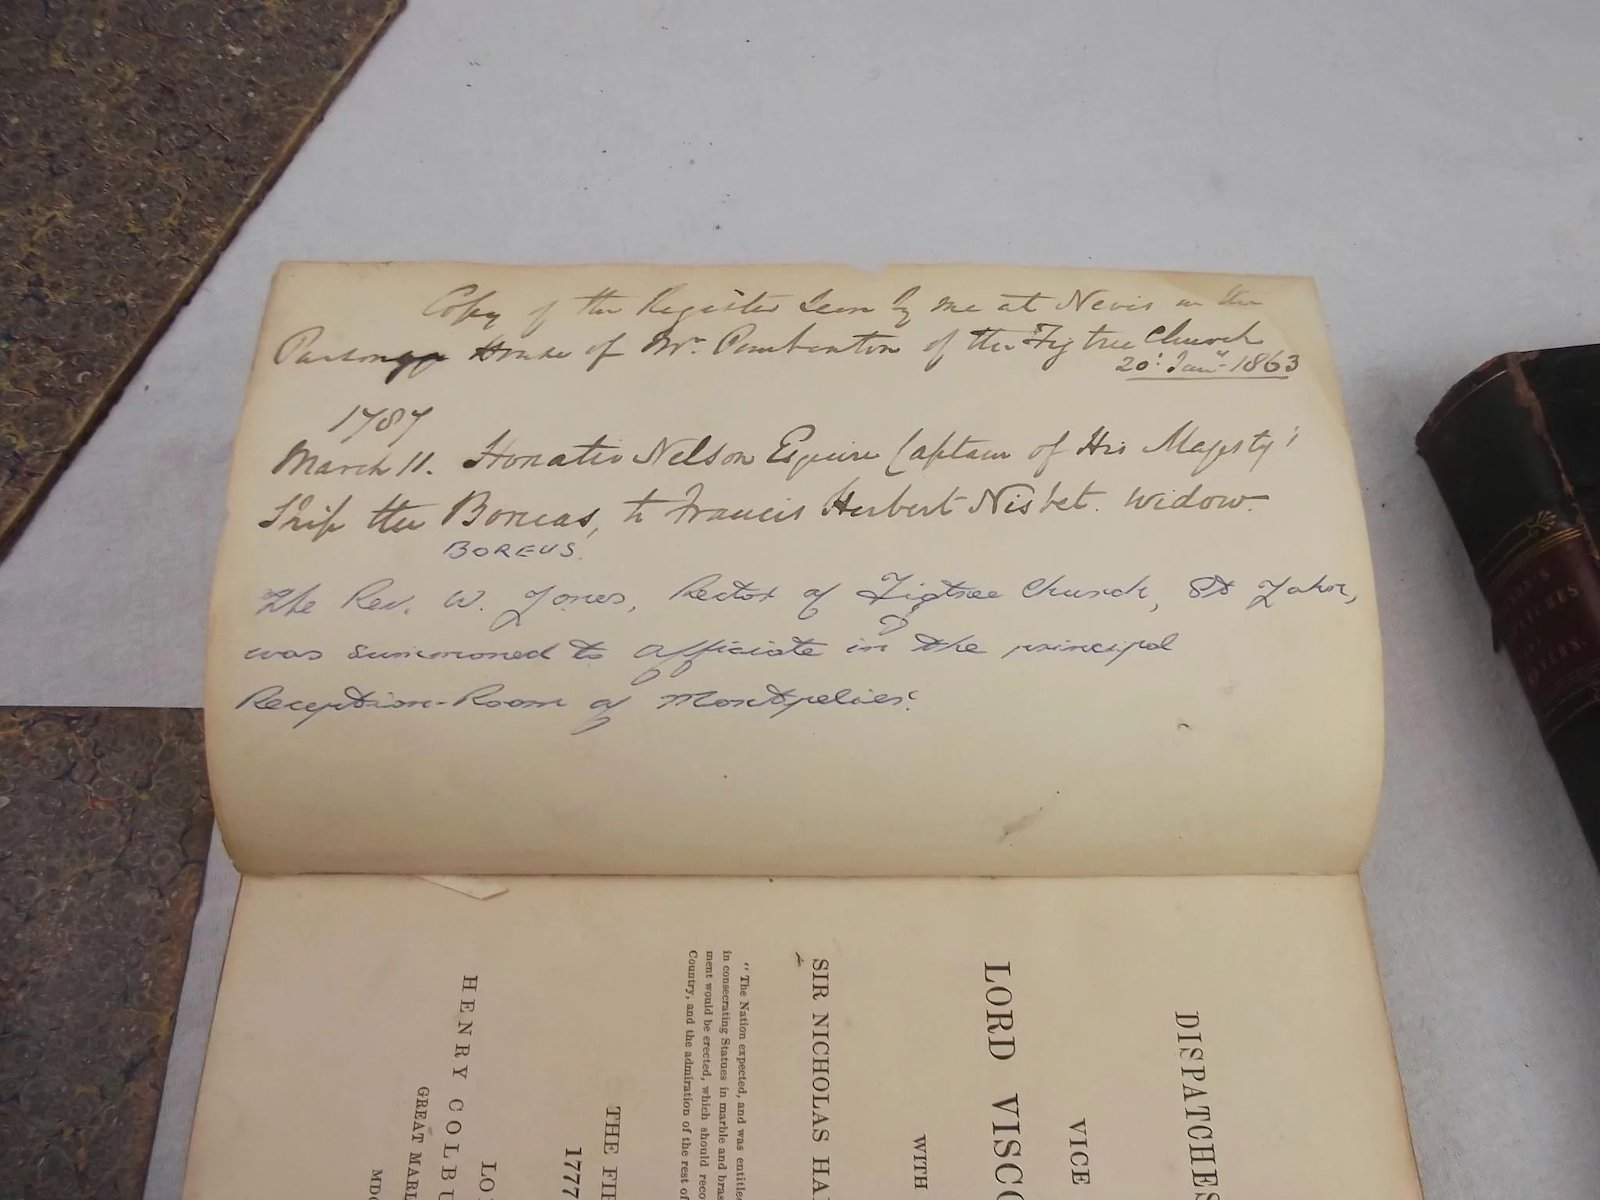 Copy of the Register seen by me at Nevis in the
Parsonage House of Mr. Pemberton of the Fig tree Church
20: Jany. 1863
1787
March 11. Horatio Nelson Esquire Captain of His Majesty's
Ship the Boreas, to Francis Herbert Nisbet. Widow.
BOREUS.
The Rev. W. Jones, Rector of Figtree Church, St John,
was summoned to officiate in the principal
Reception-Room of Montpelier.
DISPATCHES
VICE
LORD VISCO
WITH
SIR NICHOLAS HA
"The Nation expected, and was entitled
in consecrating Statues in marble and bras
ment would be erected, which should reco
Country, and the admiration of the rest of
THE FI
1777
LO
HENRY COLBU
GREAT MARL
MDC